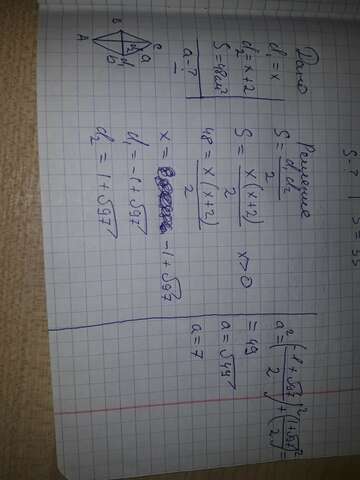 Дано
d₁ = x
d₂ = x+2
S = 48 см²
a = ?
A B C D a d₁ d₂
Решение
S = d₁d₂/2
S = x(x+2)/2 x>0
48 = x(x+2)/2
x = -1+√97
d₁ = -1+√97
d₂ = 1+√97
a² = (-1+√97/2)² + (1+√97/2)² =
= 49
a = √49
a = 7
S ?